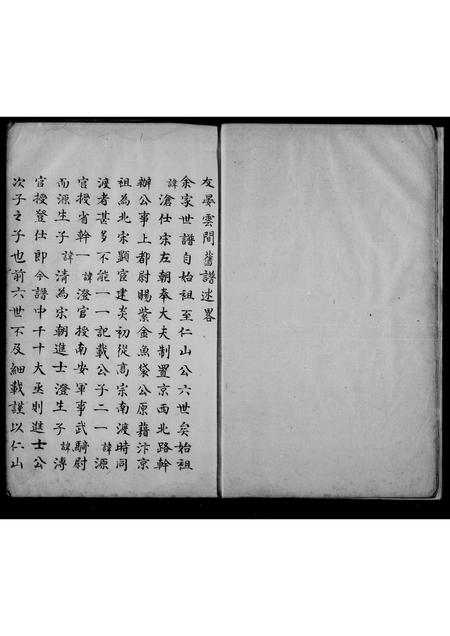 友晏雲間舊譜述畧
余家世譜自始祖至仁山公六世矣始祖
諱滄仕宋左朝奉大夫制置京西北路幹
辦公事上都尉賜紫金魚袋公原藉汴京
祖為北宋顯宦建炎初從高宗南渡時同
渡者甚多不能一一記載公子二一諱源
官授省幹一諱澄官授南安軍事武騎尉
而源生子諱清為宋朝進士澄生子諱溥
官授登仕郎今譜中千十大丞則進士公
次子之子也前六世不及細載謹以仁山